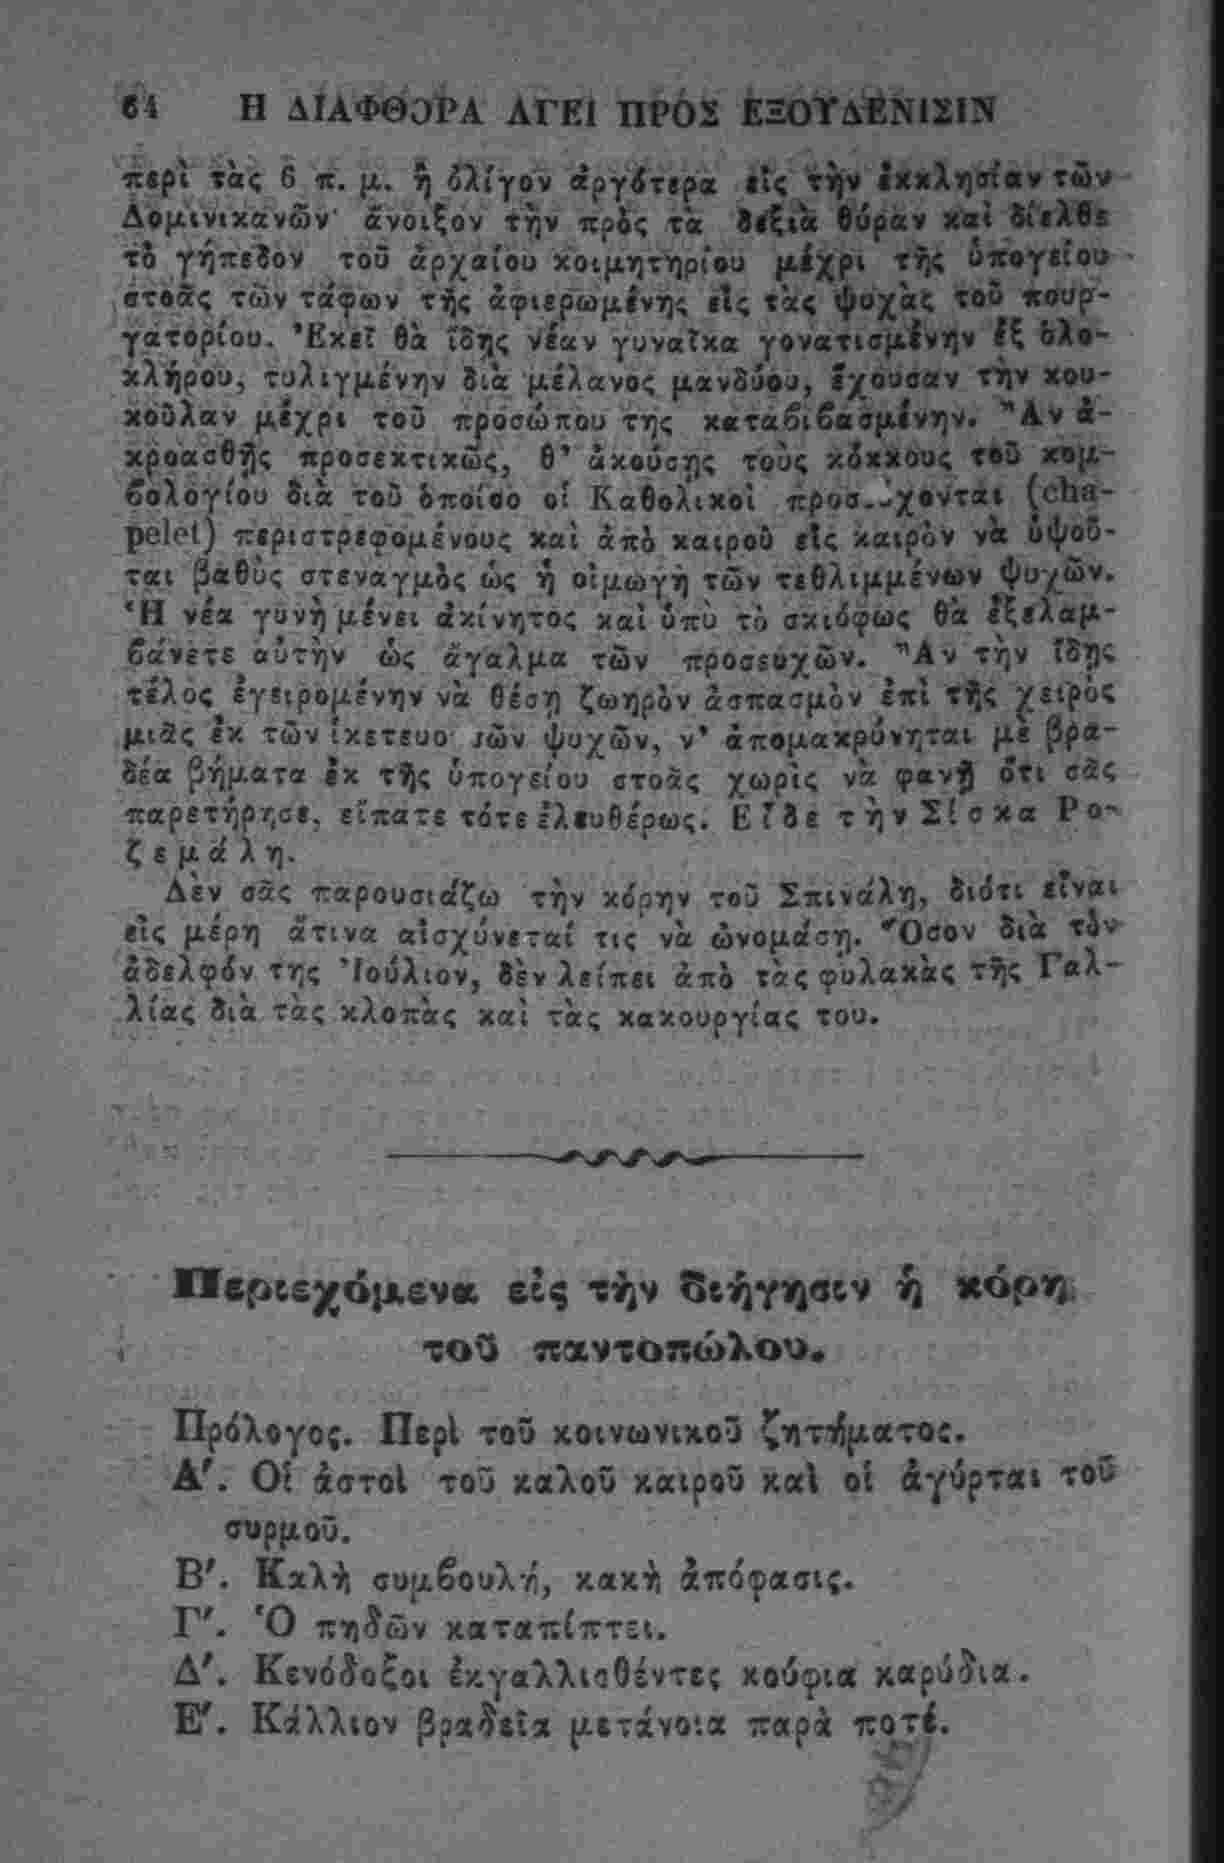 64 Η ΔΙΑΦΘΟΡΑ ΑΓΕΙ ΠΡΟΣ ΕΞΟΥΔΕΝΙΣΙΝ
περὶ τὰς 6 π. μ. ἢ ὀλίγον ἀργότερα εἰς τὴν ἐκκλησίαν τῶν
Δομινικανῶν· ἄνοιξον τὴν πρὸς τὰ δεξιὰ θύραν καὶ δίελθε
τὸ γήπεδον τοῦ ἀρχαίου κοιμητηρίου μέχρι τῆς ὑπογείου
στοᾶς τῶν τάφων τῆς ἀφιερωμένης εἰς τὰς ψυχὰς τοῦ πουρ-
γατορίου. Ἐκεῖ θὰ ἴδῃς νέαν γυναῖκα γονατισμένην ἐξ ὁλο-
κλήρου, τυλιγμένην διὰ μέλανος μανδύου, ἔχουσαν τὴν κου-
κοῦλαν μέχρι τοῦ προσώπου της καταβιβασμένην. Ἂν ἀ-
κροασθῇς προσεκτικῶς, θ' ἀκούσῃς τοὺς κόκκους τοῦ κομ-
βολογίου διὰ τοῦ ὁποίου οἱ Καθολικοὶ (cha-
pelet) περιστρεφομένους καὶ ἀπὸ καιροῦ εἰς καιρὸν νὰ ὑψοῦ-
ται βαθὺς στεναγμὸς ὡς ἡ οἰμωγὴ τῶν τεθλιμμένων ψυχῶν.
Ἡ νέα γυνὴ μένει ἀκίνητος καὶ ὑπὸ τὸ σκιόφως θὰ ἐξελαμ-
βάνετε αὐτὴν ὡς ἄγαλμα τῶν προσευχῶν. Ἂν τὴν ἴδῃς
τέλος ἐγειρομένην νὰ θέσῃ ζωηρὸν ἀσπασμὸν ἐπὶ τῆς χειρὸς
μιᾶς ἐκ τῶν ψυχῶν, ν' ἀπομακρύνηται μὲ βρα-
δέα βήματα ἐκ τῆς ὑπογείου στοᾶς χωρὶς νὰ φανῇ ὅτι σᾶς
παρετήρησε, εἴπατε τότε ἐλευθέρως. Εἶδε τὴν Σίσκα Ρο-
ζεμάλη.
Δὲν σᾶς παρουσιάζω τὴν κόρην τοῦ Σπινάλη, διότι εἶναι
εἰς μέρη ἅτινα αἰσχύνεταί τις νὰ ὠνομάσῃ. Ὅσον διὰ τὸν
ἀδελφόν της Ἰούλιον, δὲν λείπει ἀπὸ τὰς φυλακὰς τῆς Γαλ-
λίας διὰ τὰς κλοπὰς καὶ τὰς κακουργίας του.
Περιεχόμενα εἰς τὴν διήγησιν ἡ κόρη
τοῦ παντοπώλου.
Πρόλογος. Περὶ τοῦ κοινωνικοῦ ζητήματος.
Α'. Οἱ ἀστοὶ τοῦ καλοῦ καιροῦ καὶ οἱ ἀγύρται τοῦ
συρμοῦ.
Β'. Καλὴ συμβουλή, κακὴ ἀπόφασις.
Γ'. Ὁ πηδῶν καταπίπτει.
Δ'. Κενόδοξοι ἐκγαλλισθέντες κούφια καρύδια.
Ε'. Κάλλιον βραδεῖα μετάνοια παρὰ ποτέ.